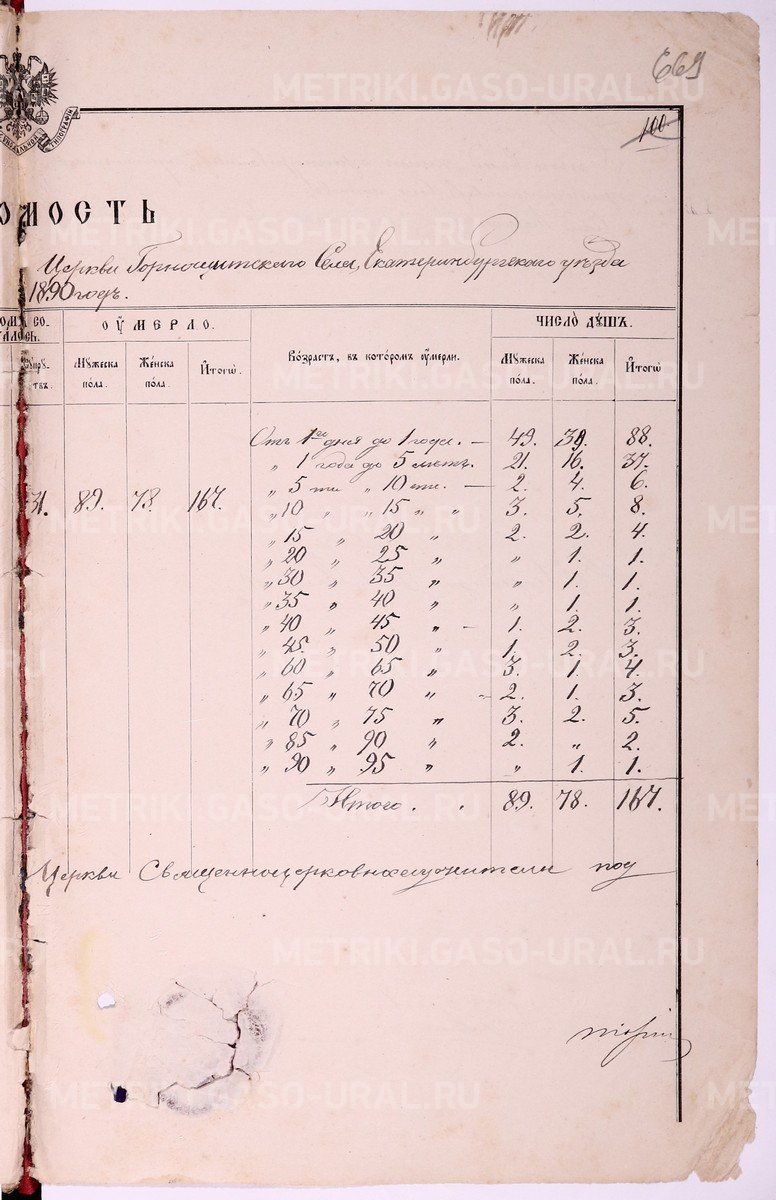 669
100.
ОМОСТЬ
Церкви Горнощитскаго Села, Екатеринбургскаго уѣзда
1890 годъ.
ОУМЕРЛО.
ЧИСЛО ДУШЪ.
Мужеска пола.
Женска пола.
Итогѡ.
Возрастъ, въ которомъ оумерли.
Мужеска пола.
Женска пола.
Итогѡ
Отъ 1го дня до 1 года. — 49. 39. 88.
„ 1 года до 5 лѣтъ. 21. 16. 37.
„ 5 ти „ 10 ти. — 2. 4. 6.
31. 89. 78. 167. „ 10 „ „ 15 „ „ 3. 5. 8.
„ 15 „ 20 „ 2. 2. 4.
„ 20 „ 25 „ „ 1. 1.
„ 30 „ 35 „ „ 1. 1.
„ 35 „ 40 „ „ 1. 1.
„ 40 „ 45 „ — 1. 2. 3.
„ 45. „ 50 „ 1. 2. 3.
„ 60 „ 65 „ 3. 1. 4.
„ 65 „ 70 „ 2. 1. 3.
„ 70 „ 75 „ 3. 2. 5.
„ 85 „ 90 „ 2. „ 2.
„ 90 „ 95 „ „ 1. 1.
Итого. . 89. 78. 167.
Церкви Священноцерковнослужители под
METRIKI.GASO-URAL.RU